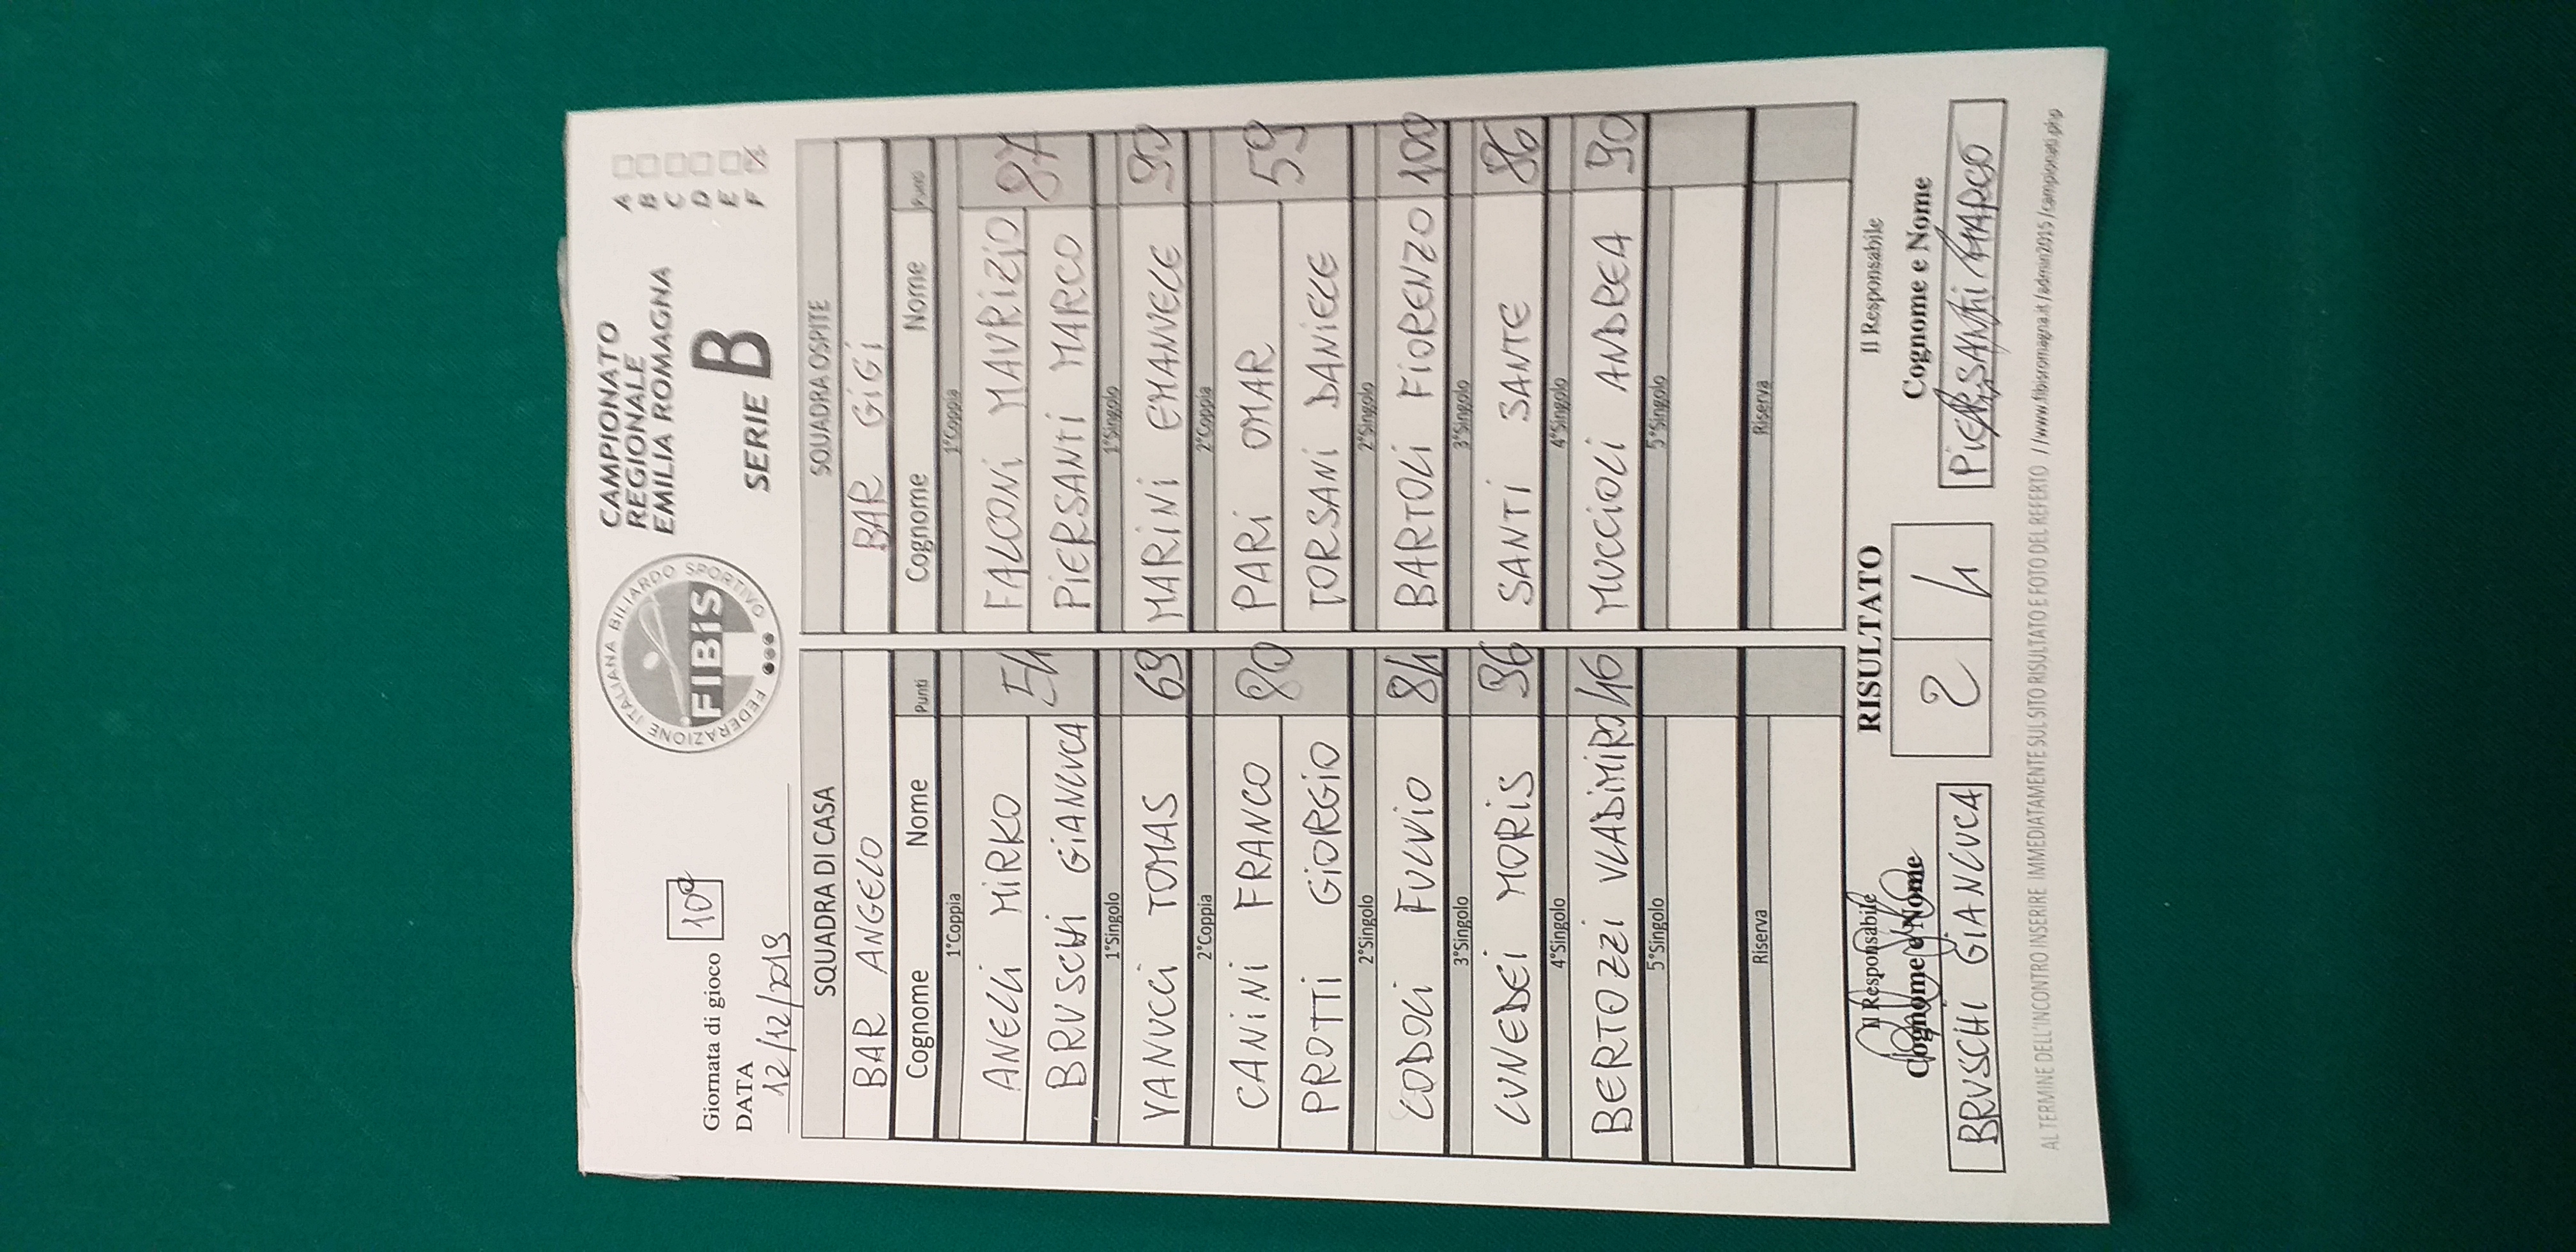 Giornata di gioco 10ª
DATA
12/12/2019
FEDERAZIONE ITALIANA BILIARDO SPORTIVO
FIBiS
CAMPIONATO
REGIONALE
EMILIA ROMAGNA
SERIE B
A
B
C
D
E
F X
SQUADRA DI CASA SQUADRA OSPITE
BAR ANGELO BAR GIGI
Cognome Nome Punti Cognome Nome Punti
1°Coppia 1°Coppia
ANELLI MIRKO 54 FALCONI MAURIZIO 87
BRUSCHI GIANLUCA PIERSANTI MARCO
1°Singolo 1°Singolo
VANUCCI TOMAS 69 MARINI EMANUELE 99
2°Coppia 2°Coppia
CANINI FRANCO 80 PARI OMAR 59
PROTTI GIORGIO TORSANI DANIELE
2°Singolo 2°Singolo
LODOLI FULVIO 84 BARTOLI FIORENZO 100
3°Singolo 3°Singolo
LUNEDEI MORIS 96 SANTI SANTE 86
4°Singolo 4°Singolo
BERTOZZI VLADIMIRO 46 MUCCIOLI ANDREA 90
5°Singolo 5°Singolo
Riserva Riserva
Il Responsabile RISULTATO Il Responsabile
Cognome e Nome 2 4 Cognome e Nome
BRUSCHI GIANLUCA PIERSANTI MARCO
AL TERMINE DELL'INCONTRO INSERIRE IMMEDIATAMENTE SUL SITO RISULTATO E FOTO DEL REFERTO //www.fibisromagna.it/admin2015/campionati.php